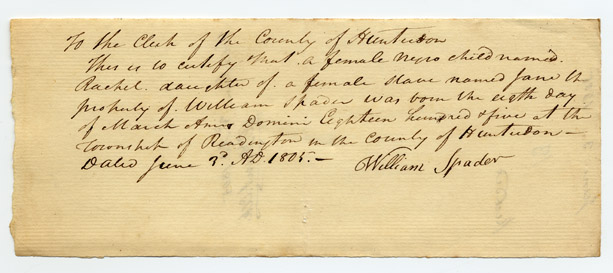 To the Clerk of the County of Hunterdon
This is to certify that a female Negro child named.
Rachel. daughter of. a female slave named Jane the
property of William Spader was born the eigth day
of March Anno Domini Eighteen hundred & five at the
Township of Readington in the County of Hunterdon—
Dated June 3. AD. 1805.—
William Spader